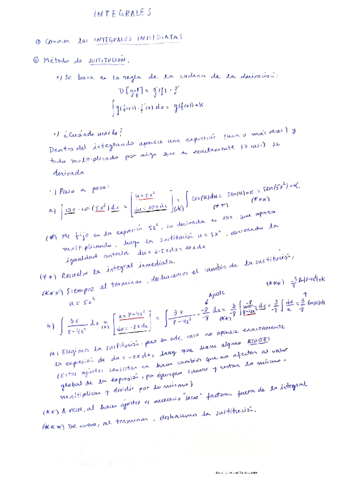 INTEGRALES
① Conocer las INTEGRALES INMEDIATAS
② Método de SUSTITUCIÓN.
•) Se basa en la regla de la cadena de la derivación:
•) ¿Cuándo usarlo?
Dentro del integrando aparece una expresión (una o más veces) y
todo multiplicado por algo que es exactamente (o casi) su
derivada
•) Paso a paso:
a) ∫ 10x · cos(5x²) dx = [u = 5x² du = 10x dx] = ∫ cos(u) du = sen(u) + K = sen(5x²) + K
(*) Me fijo en la expresión 5x², su derivada es 10x, que aparece
multiplicando, luego la sustitución u = 5x², derivando la
igualdad
(**) Resuelvo la integral inmediata.
(***) Siempre al terminar, deshacemos el cambio de la sustitución,
u = 5x²
ajuste
(*) Elegimos la sustitución, pero en este caso no aparece exactamente
la expresión de du = -8x dx, hay que hacer algunos AJUSTES
(Estos ajustes consisten en hacer cambios que no afectan al valor
global de la expresión, por ejemplo sumar y restar lo mismo
multiplicar y dividir por lo mismo)
(**) A veces, al hacer ajustes es necesario "sacar" factores fuera de la integral
(***) De nuevo, al terminar, deshacemos la sustitución.